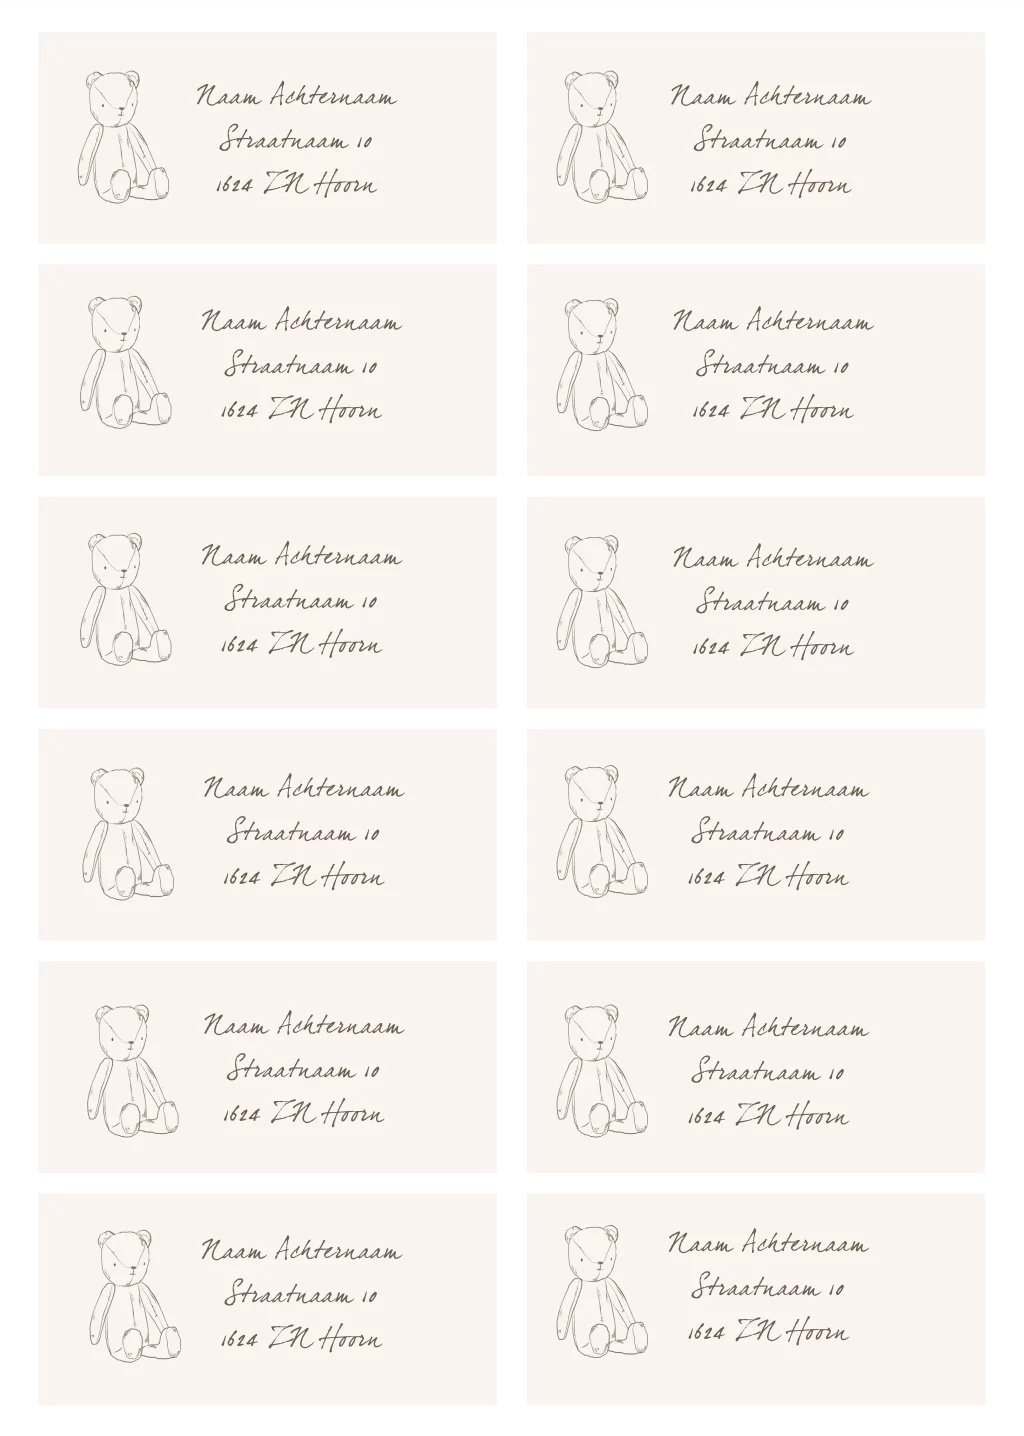 Naam Achternaam
Straatnaam 10
1624 ZN Hoorn
Naam Achternaam
Straatnaam 10
1624 ZN Hoorn
Naam Achternaam
Straatnaam 10
1624 ZN Hoorn
Naam Achternaam
Straatnaam 10
1624 ZN Hoorn
Naam Achternaam
Straatnaam 10
1624 ZN Hoorn
Naam Achternaam
Straatnaam 10
1624 ZN Hoorn
Naam Achternaam
Straatnaam 10
1624 ZN Hoorn
Naam Achternaam
Straatnaam 10
1624 ZN Hoorn
Naam Achternaam
Straatnaam 10
1624 ZN Hoorn
Naam Achternaam
Straatnaam 10
1624 ZN Hoorn
Naam Achternaam
Straatnaam 10
1624 ZN Hoorn
Naam Achternaam
Straatnaam 10
1624 ZN Hoorn